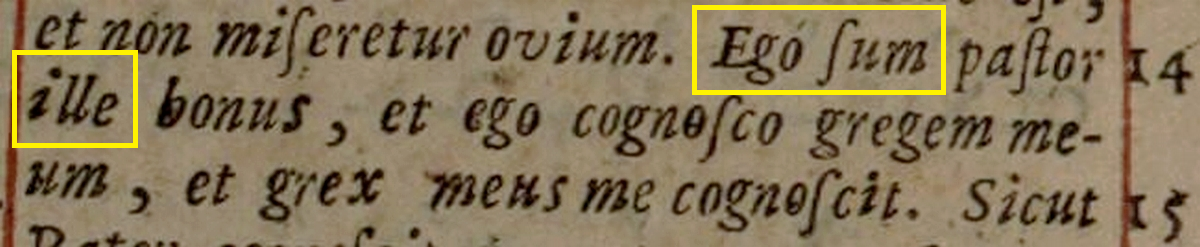 et non miſeretur ovium. Ego ſum paſtor 14
ille bonus, et ego cognoſco gregem me-
um, et grex meus me cognoſcit. Sicut 15